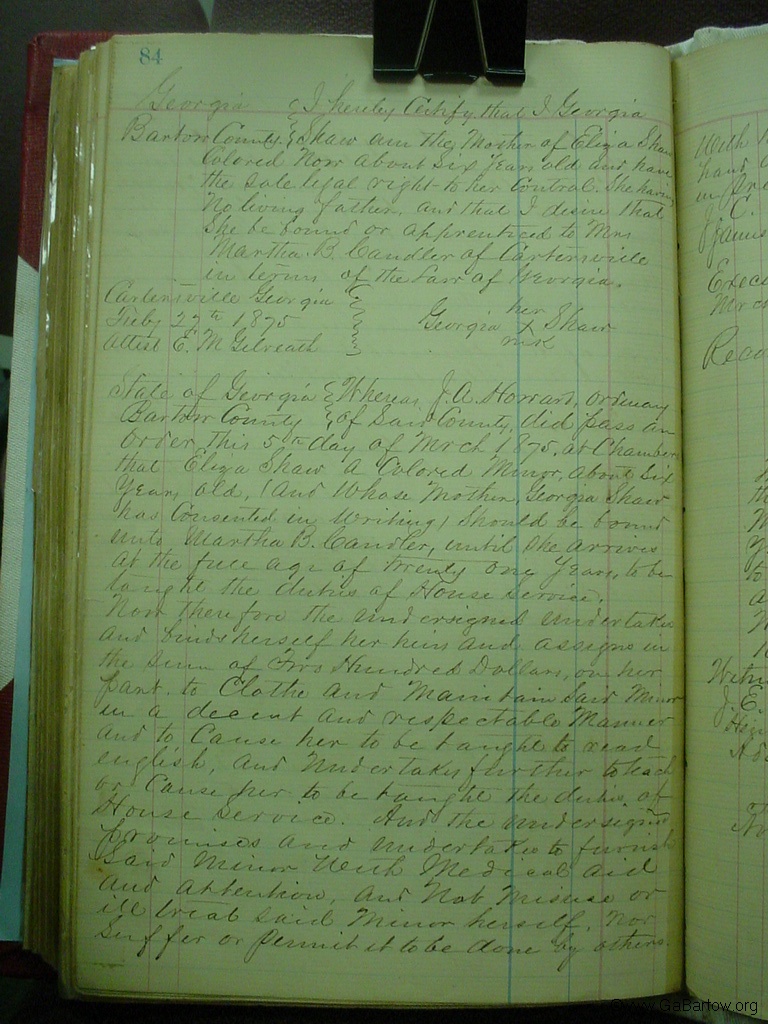 84
Georgia { I hereby Certify that I Georgia
Bartow County { Shaw am the Mother of Eliza Shaw
Colored Now about Six Years old and have
the sole legal right to her Control. She having
No living father, and that I desire that
She be bound or apprenticed to Mrs
Martha B. Candler of Cartersville
in terms of the Law of Georgia.
Cartersville Georgia {
Feby 27th 1875 { Georgia her x mrk Shaw
attest E. M Gilreath {
State of Georgia { Whereas J. A. Howard, ordinary
Bartow County { of Said County, did pass an
order, this 5th day of Mrch 1875, at Chambers
that Eliza Shaw a Colored Minor, about Six
Years old, (And Whose Mother, Georgia Shaw
has Consented in Writing) Should be bound
unto Martha B. Candler, until She arrives
at the full age of twenty one Years, to be
taught the duties of House Service.
Now therefore the undersigned undertakes
and binds herself her heirs and assigns in
the Sum of Two Hundred Dollars, on her
part to Clothe and Maintain Said Minor
in a decent and respectable Manner
and to Cause her to be taught to read
english, and Undertakes further to teach
or Cause her to be taught the duties of
House Service. And the undersigned
Promises and undertakes to furnish
Said Minor With Medical aid
and attention, and Not Misuse or
ill treat Said Minor herself, Nor
Suffer or permit it to be done by others.
With
hand
in
C.
James
Mr
J. E.
www.GaBartow.org